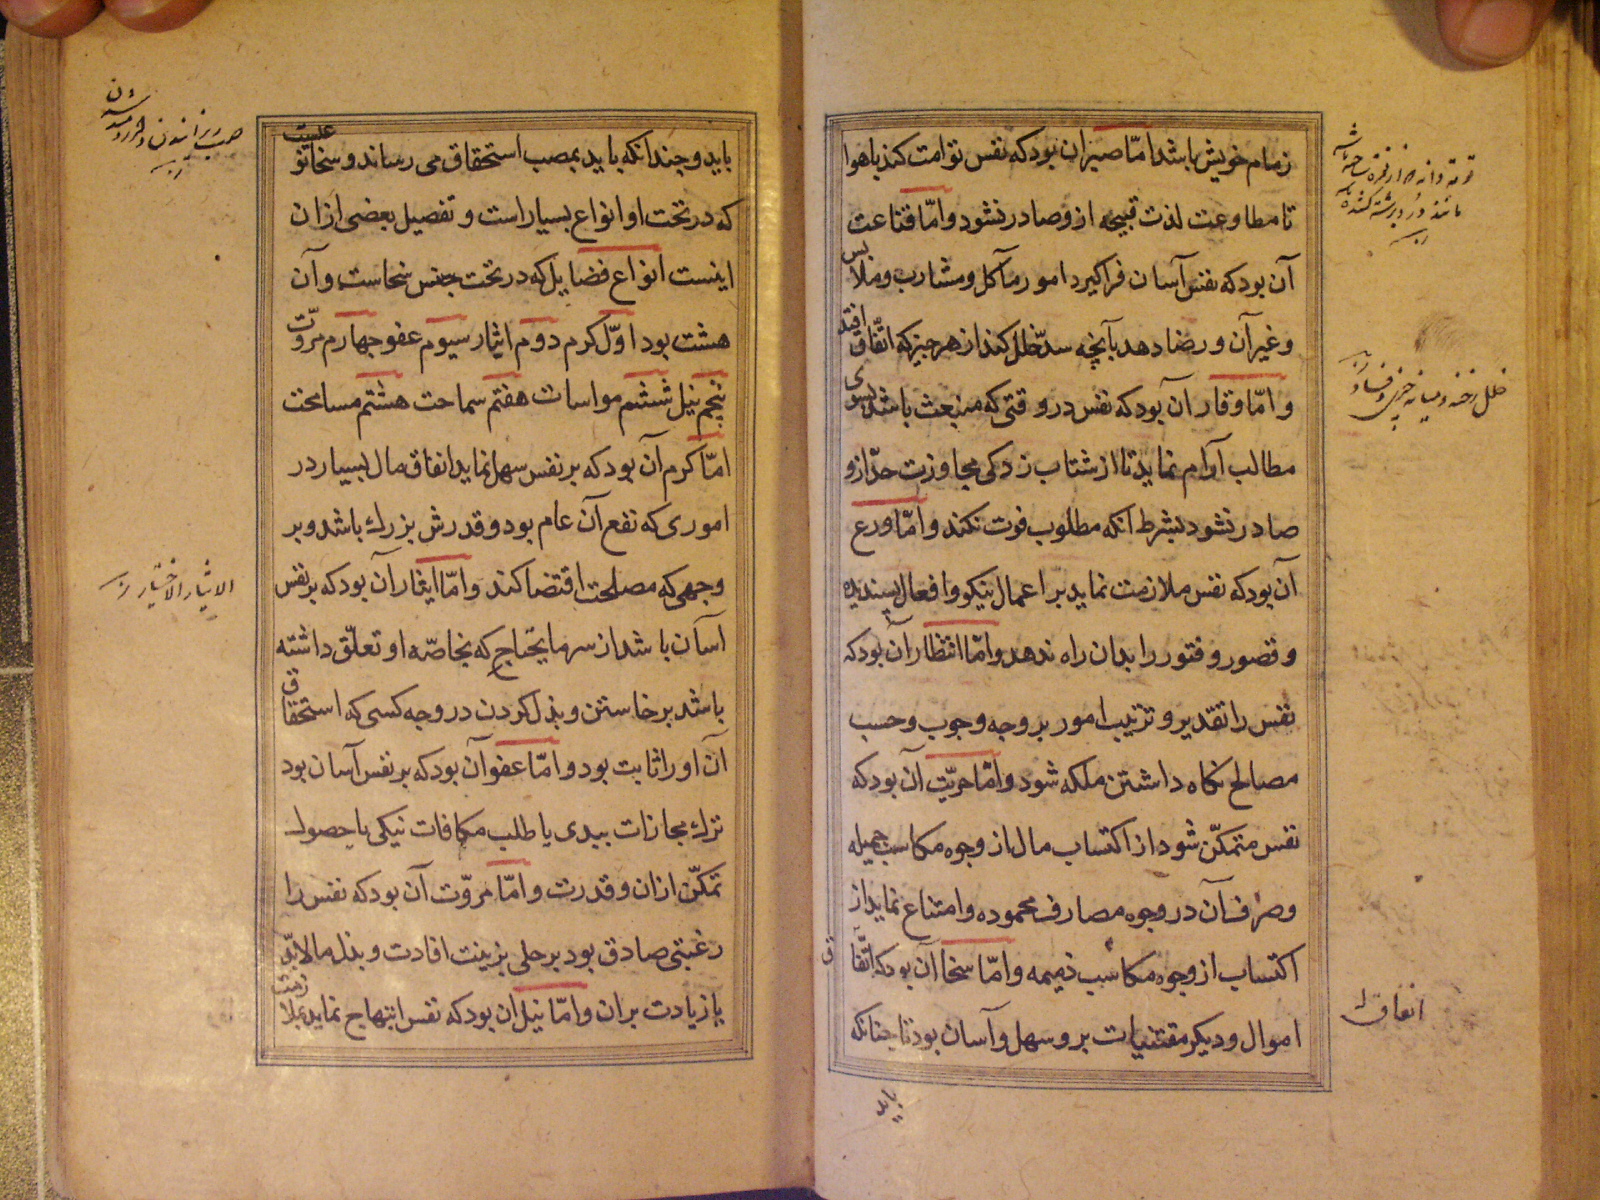 زمام خویش باشد امّا صبر ان بود که نفس مقاومت کند با هوا
تا مطاوعت لذت قبیحه ازو صادر نشود و امّا قناعت
آن بود که نفس آسان فرا گیرد امور مآکل و مشارب و ملابس
و غیر آن و رضا دهد بآنچه سدّ خلل کند از هر جنس که اتّفاق افتد
و امّا وقار آن بود که نفس در وقتی که منبعث باشد بسوی
مطالب آرام نماید تا از شتاب زدکی مجاوزت حدّ ازو
صادر نشود بشرط آنکه مطلوب فوت نکند و امّا ورع
آن بود که نفس ملازمت نماید بر اعمال نیکو و افعال پسندیده
و قصور و فتور را بدان راه ندهد و امّا انتظار آن بود که
نفس را تقدیر و ترتیب امور بر وجه وجوب و حسب
مصالح نکاه داشتن ملکه شود و امّا حریّت آن بود که
نفس متمکّن شود از اکتساب مال از وجوه مکاسب جمیله
و صرف آن در وجوه مصارف محموده و امتناع نماید از
اکتساب از وجوه مکاسب ذمیمه و امّا سخا آن بود که اتّفاق
اموال و دیکر مقتنیات برو سهل و آسان بود تا چنانکه
باید
انفاق
باید و چندانکه باید بمصب استحقاق می رساند و سخا نوعیست
که در تحت او انواع بسیار است و تفصیل بعضی ازان
اینست انواع فضایل که در تحت جنس سخاست و آن
هشت بود اوّل کرم دوم ایثار سیوم عفو چهارم مروّت
پنجم نیل ششم مواسات هفتم سماحت هشتم مسامحت
امّا کرم آن بود که بر نفس سهل نماید انفاق مال بسیار در
اموری که نفع آن عام بود و قدرش بزرك باشد و بر
وجهی که مصلحت اقتضا کند و امّا ایثار آن بود که بر نفس
آسان باشد از سر مایحتاج که بخاصّه او تعلّق داشته
باشد برخاستن و بذل کردن در وجه کسی که استحقاق
آن او را ثابت بود و امّا عفو آن بود که بر نفس آسان بود
ترك مجازات ببدی یا طلب مکافات نیکی با حصول
تمکّن ازان و قدرت و امّا مروّت آن بود که نفس را
رغبتی صادق بود بر حلی بزینت افادت و بذل مالابدّ
یا زیادت بران و امّا نیل ان بود که نفس ابتهاج نماید بملازمت
الایثار الاختیار